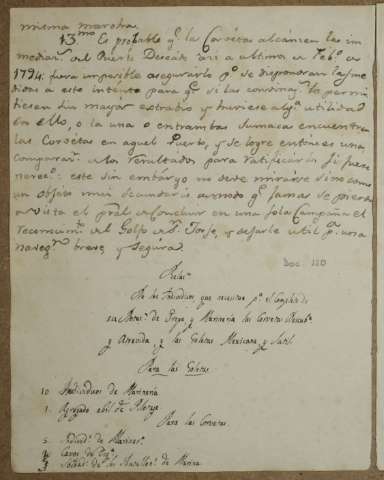 misma marcha.
13.mo Es probable q.e la Corvetas alcáncen las in-
mediac.s del Puerto Deseado acia ultimos de Feb.o de
1794: fuera imposible asegurarlo p.o se dispondran las me
didas a este intento para q.e si las combinac.s lo permi
tiesen sin mayor extrabio y huviese alg.a utilidad
en ello, o la una o entrambas Sumacas encuentren
las Corvetas en aquel Puerto, y se logre entonces una
comparac.n de los resultados para ratificarlos si fuese
neces.o: este sin embargo no deve mirarse sino como
un objeto mui secundario, de modo q.e jamas se pierda
de vista el pral. de concluir en una sola Campaña el
reconocim.to del Golfo de S.n Jorje, y dejarle util p.a una
naveg.n breve y segura.
Doc 120
Relac.n
De los Individuos que necesitan p.a el completo de
sus Dotac.s de Tropa, y Marineria las Corvetas Descub.a
y Atrevida, y las Goletas Mexicana y Sutil
Para las Goletas
10. Individuos de Marineria
1. Agregado abil de Pilotage
Para las Corvetas
5. Individ.s de Mariner.a
4. Cavos de Esq.a
3. Soldad.s de los Batallon.s de Marina